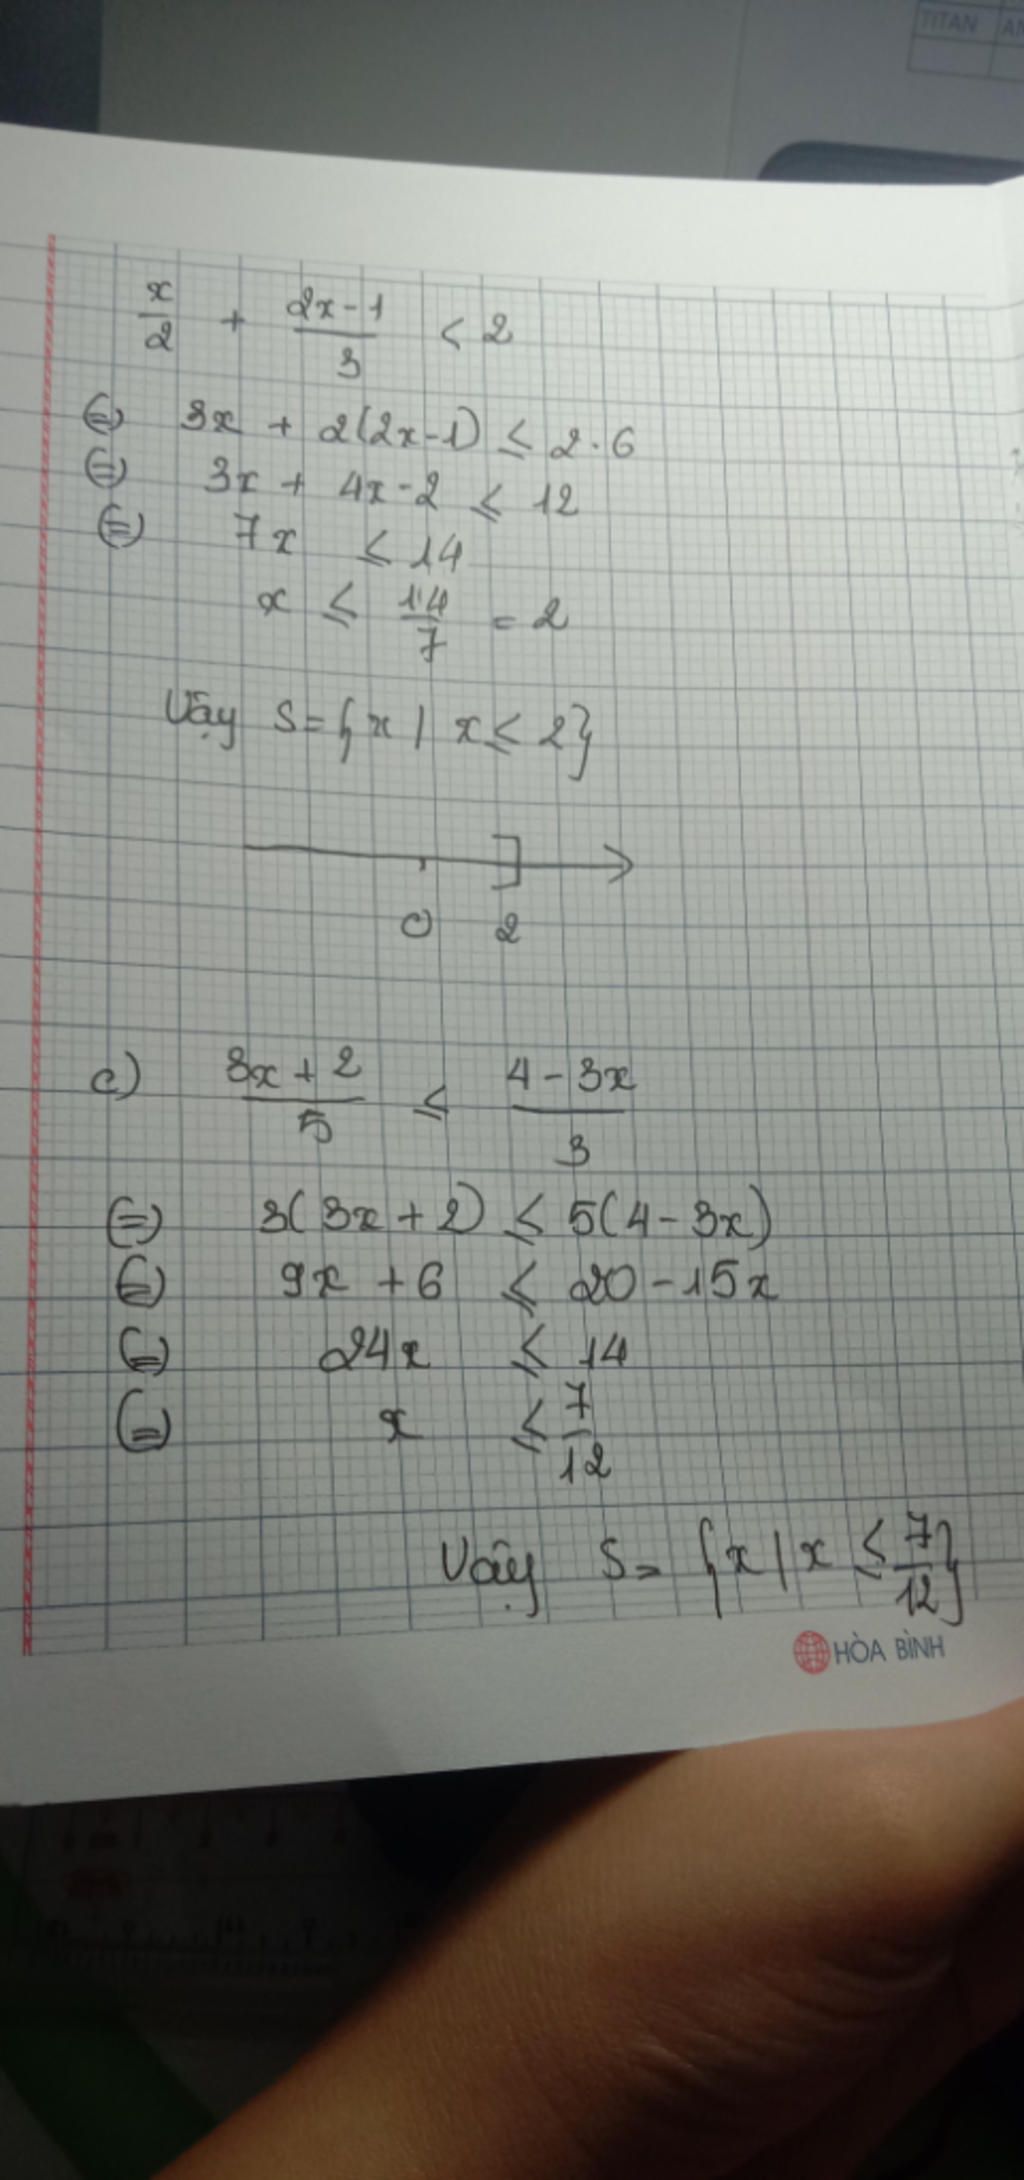 TITAN AN
x/2 + (2x-1)/3 < 2
⇔ 3x + 2(2x-1) ≤ 2.6
⇔ 3x + 4x-2 ≤ 12
⇔ 7x ≤ 14
x ≤ 14/7 = 2
Vậy S = {x | x ≤ 2}
0 2
c) (3x+2)/5 ≤ (4-3x)/3
⇔ 3(3x+2) ≤ 5(4-3x)
⇔ 9x +6 ≤ 20-15x
⇔ 24x ≤ 14
⇔ x ≤ 7/12
Vậy S = {x | x ≤ 7/12}
HÒA BÌNH